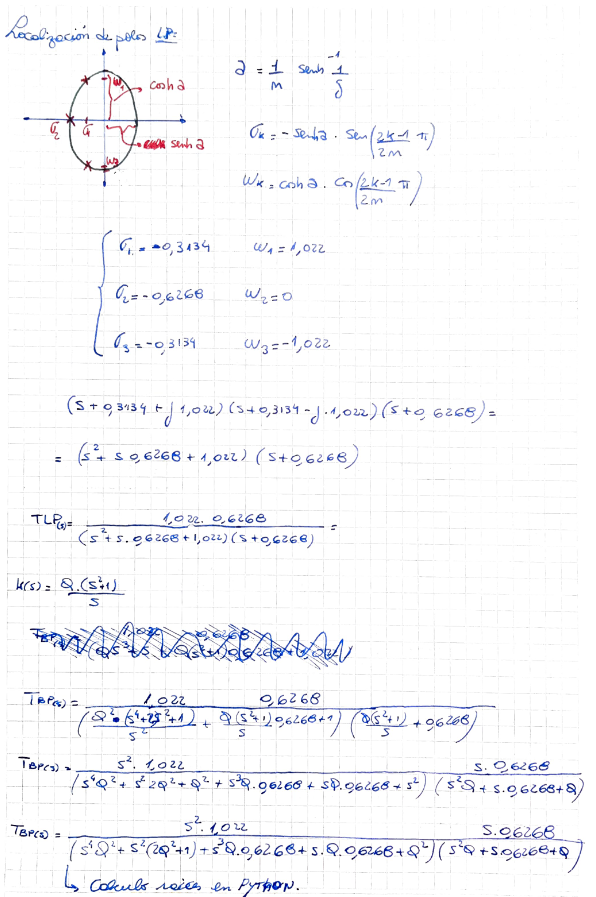 Localización de polos LP:
ω₁ cosh a
σ₂ σ₁
senh a
ω₃
a = 1/n senh⁻¹ 1/ξ
σₖ = - senh a · sen(2k-1/2n π)
ωₖ = cosh a · cos(2k-1/2n π)
σ₁ = -0,3134 ω₁ = 1,022
σ₂ = -0,6268 ω₂ = 0
σ₃ = -0,3134 ω₃ = -1,022
(s + 0,3134 + j 1,022) (s + 0,3134 - j · 1,022) (s + 0,6268) =
= (s² + s 0,6268 + 1,022) (s + 0,6268)
TLP(s) = 1,022 · 0,6268 / (s² + s · 0,6268 + 1,022) (s + 0,6268) =
K(s) = Q · (s²+1) / s
TBP(s) = 1,022 0,6268 / (Q² · (s⁴+2s²+1)/s² + Q(s²+1) 0,6268+1/s) (Q(s²+1)/s + 0,6268)
TBP(s) = s² · 1,022 s · 0,6268 / (s⁴Q² + s² 2Q² + Q² + s³Q · 0,6268 + sQ · 0,6268 + s²) (s²Q + s · 0,6268 + Q)
TBP(s) = s² · 1,022 s · 0,6268 / (s⁴Q² + s²(2Q²+1) + s³Q · 0,6268 + s · Q · 0,6268 + Q²) (s²Q + s · 0,6268 + Q)
↳ Calculo raices en PYTHON.